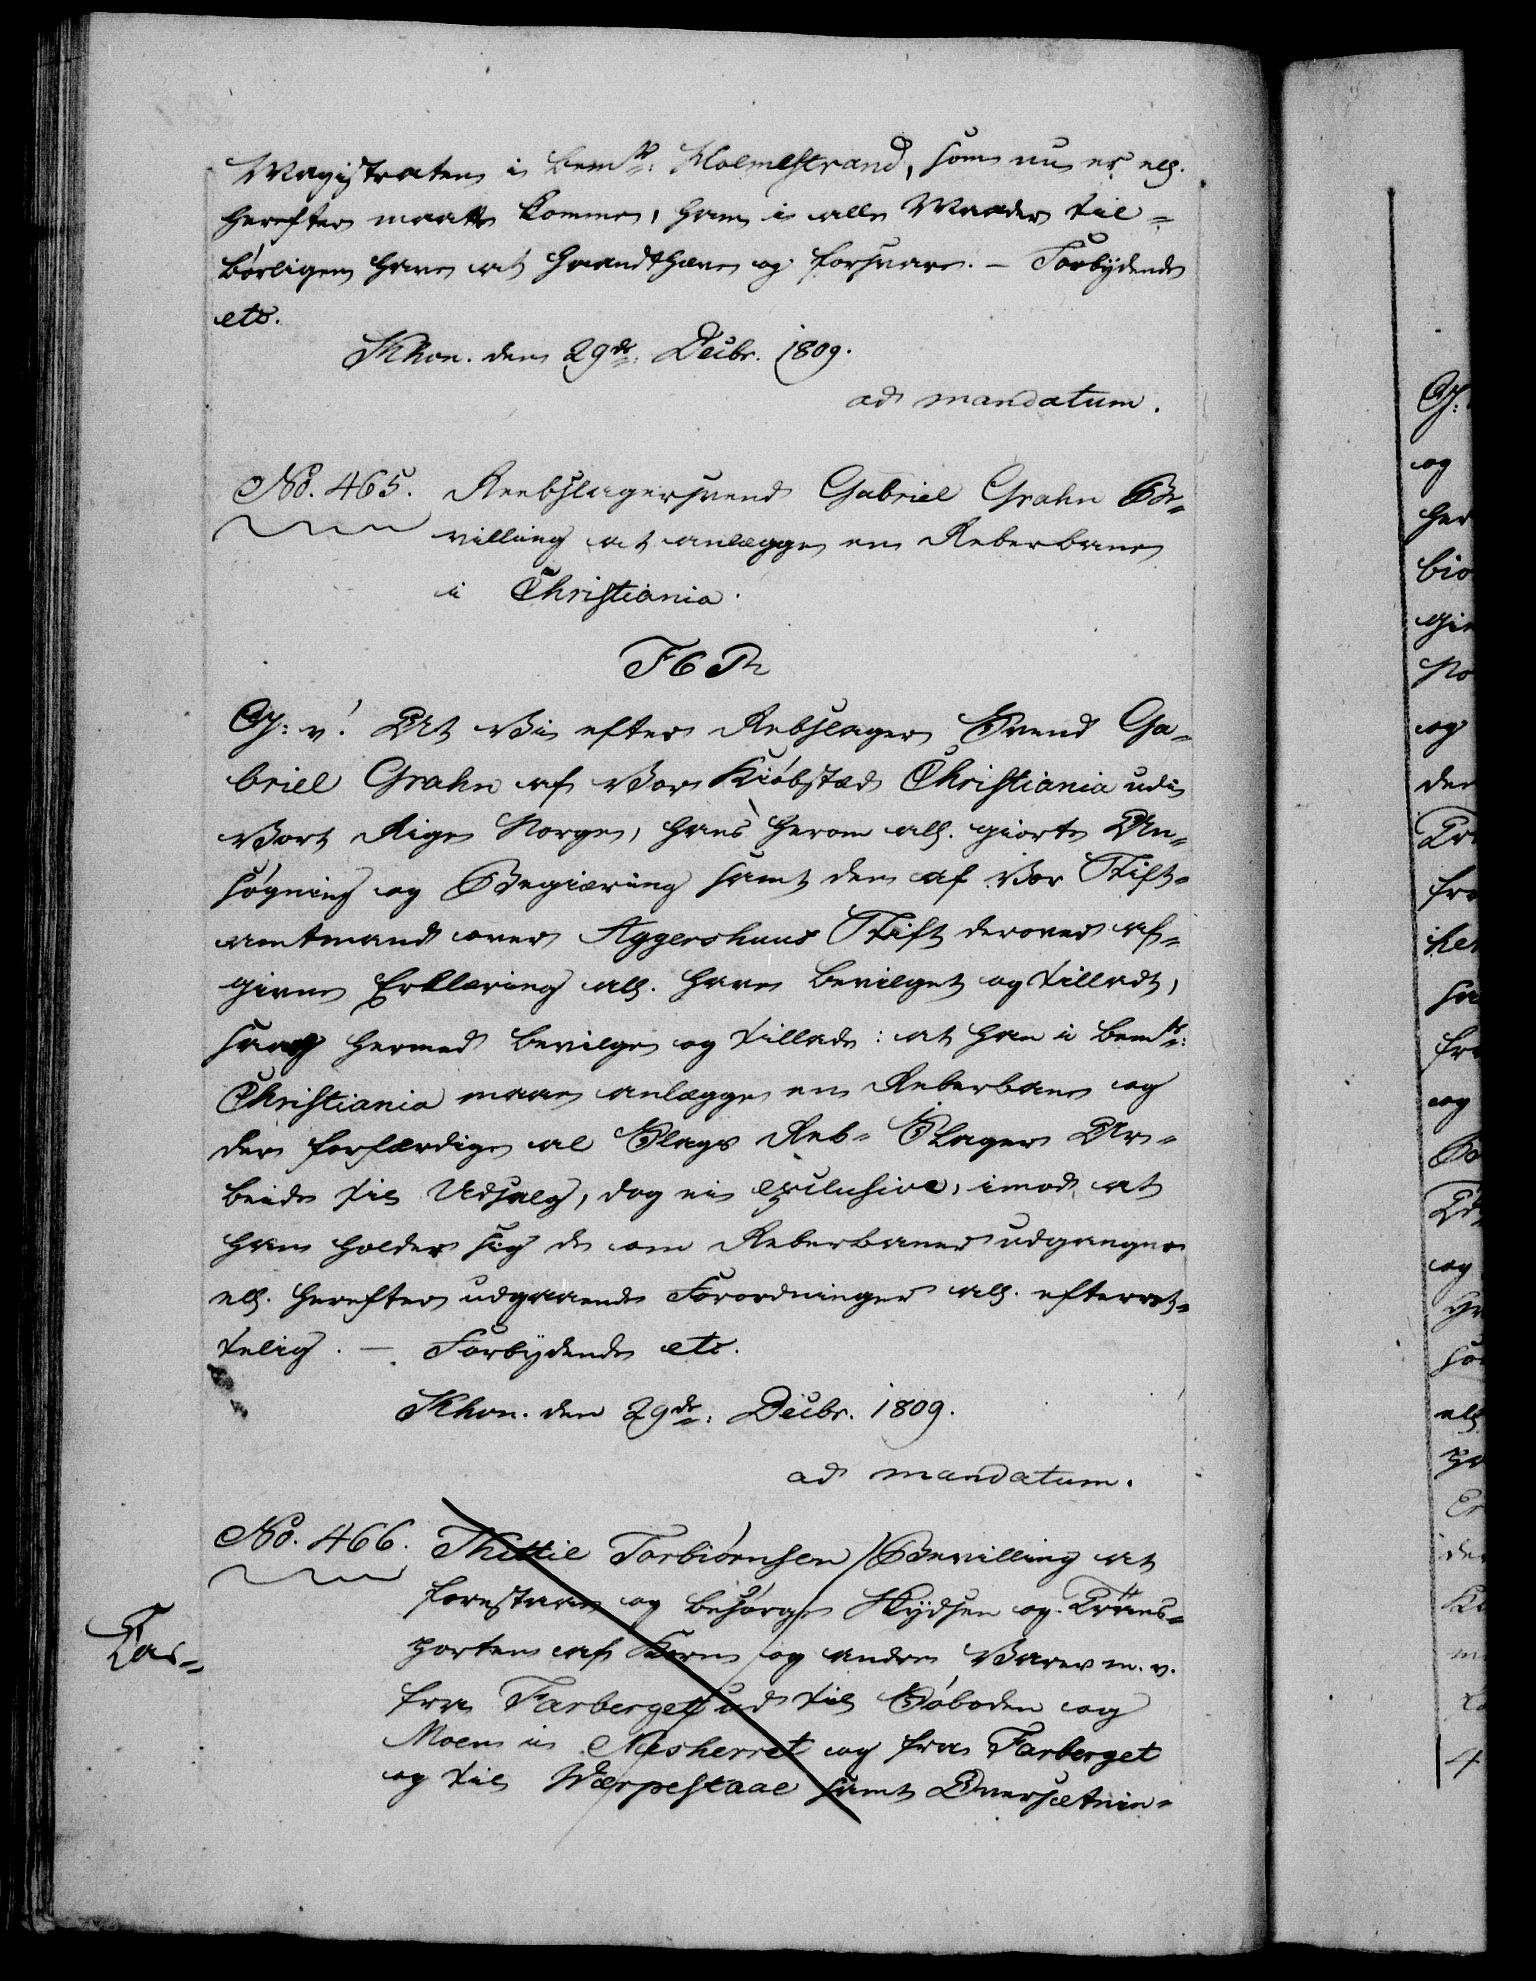 Magistraten i bemte: Holmestrand, som nu er ell.
herefter maatte komme, ham i alle Maader til-
børligen have at haandthæve og forsvare. – Forbydende
etc.
Khvn. den 29de: Decbr. 1809.
ad mandatum.
No. 465. Reebslagersvend Gabriel Grahn Be-
villing at anlægge en Reberbane
i Christiania.
F 6 R
G: v! At Vi efter Rebslager Svend Ga-
briel Grahn af Vor Kiøbstæd Christiania udi
Vort Rige Norge, hans herom all. giorte An-
søgning og Begiæring samt den af Vor Stift-
amtmand over Aggershuus Stift derover af-
givne Erklæring all. have bevilget og tilladt,
saa og hermed bevilge og tillade: at han i bemte:
Christiania maae anlægge en Reberbane og
der forfærdige al Slags Reb-Slager Ar-
beide til Udsalg, dog ei exclusive, imod at
han holder sig de om Reberbaner udgangne
ell. herefter udgaaende Forordninger all. efterret-
telig. – Forbydende etc.
Khvn. den 29de: Decbr. 1809.
ad mandatum.
No. 466. Thittil Torbiørnsen Bevilling at
forestaae og besørge Skydsen og Trans-
porten af Korn og andre Varer m. v.
fra Farberget ud til Søboden og
Moen i Nesherret og fra Farberget
og til Værpestaae samt Oversætnin-